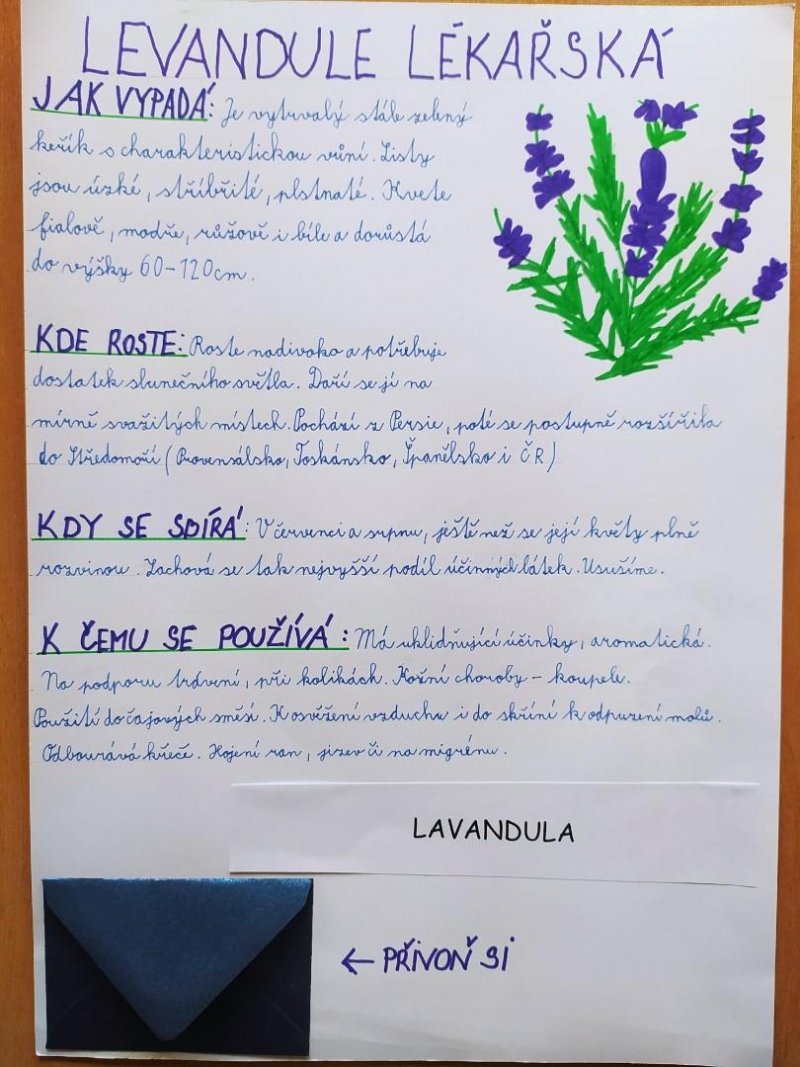 LEVANDULE LÉKAŘSKÁ
JAK VYPADÁ: Je vytrvalý stále zelený
keřík s charakteristickou vůní. Listy
jsou úzké, stříbřité, plstnaté. Kvete
fialově, modře, růžově i bíle a dorůstá
do výšky 60-120cm.
KDE ROSTE: Roste nadivoko a potřebuje
dostatek slunečního světla. Daří se jí na
mírně svažitých místech. Pochází z Persie, poté se postupně rozšířila
do Středomoří (Provensálsko, Toskánsko, Španělsko i ČR)
KDY SE SBÍRÁ: V červenci a srpnu, ještě než se její květy plně
rozvinou. Zachová se tak nejvyšší podíl účinných látek. Usušíme.
K ČEMU SE POUŽÍVÁ: Má uklidňující účinky, aromatická.
Na podporu trávení, při kolikách. Kožní choroby - koupele.
Použití do čajových směsí. K osvěžení vzduchu i do skříní k odpuzení molů.
Odbourává křeče. Hojení ran, jizev či na migrénu.
LAVANDULA
← PŘIVOŇ SI